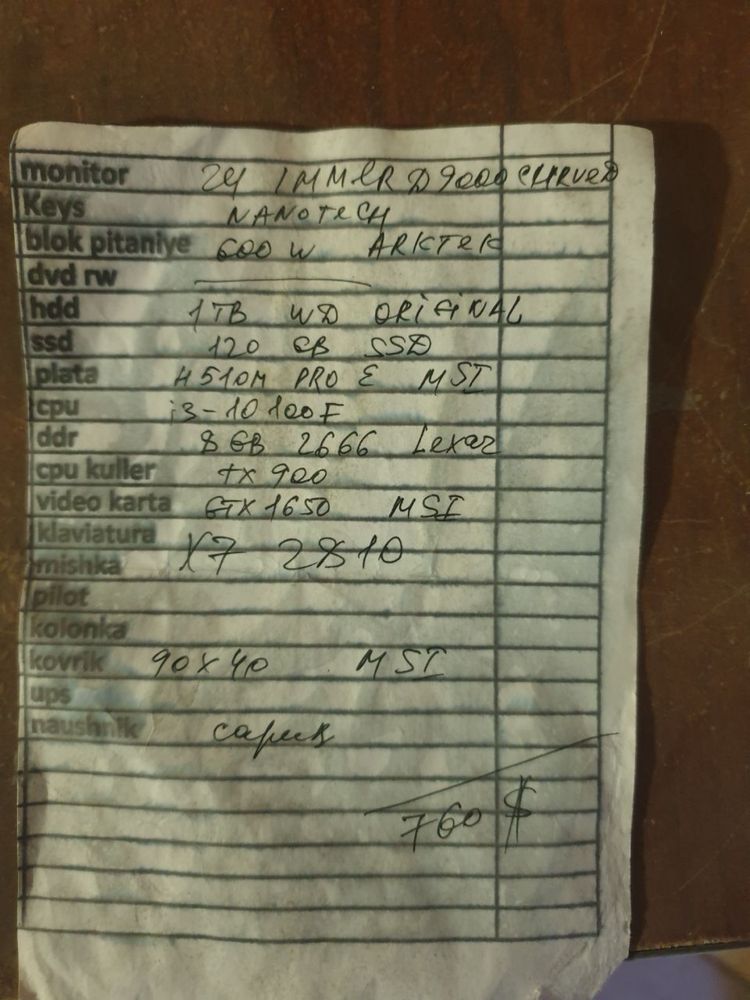 monitor 24 IMMER D9000 CHRVED
Keys NANOTECH
blok pitaniye 600 W ARKTEK
dvd rw
hdd 1TB WD ORIGINAL
ssd 120 GB SSD
plata H510M PRO E MSI
cpu i3-10100F
ddr 8 GB 2666 Lexar
cpu kuller tx 900
video karta GTX 1650 MSI
klaviatura X7 2810
mishka
pilot
kolonka
kovrik 90x40 MSI
ups
naushnik сарик
760 $